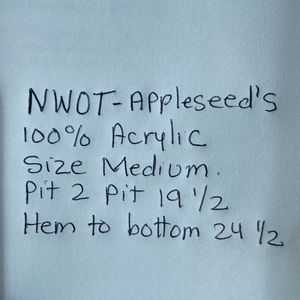 NWOT-Appleseed's
100% Acrylic
Size Medium.
Pit 2 Pit 19 1/2
Hem to bottom 24 1/2